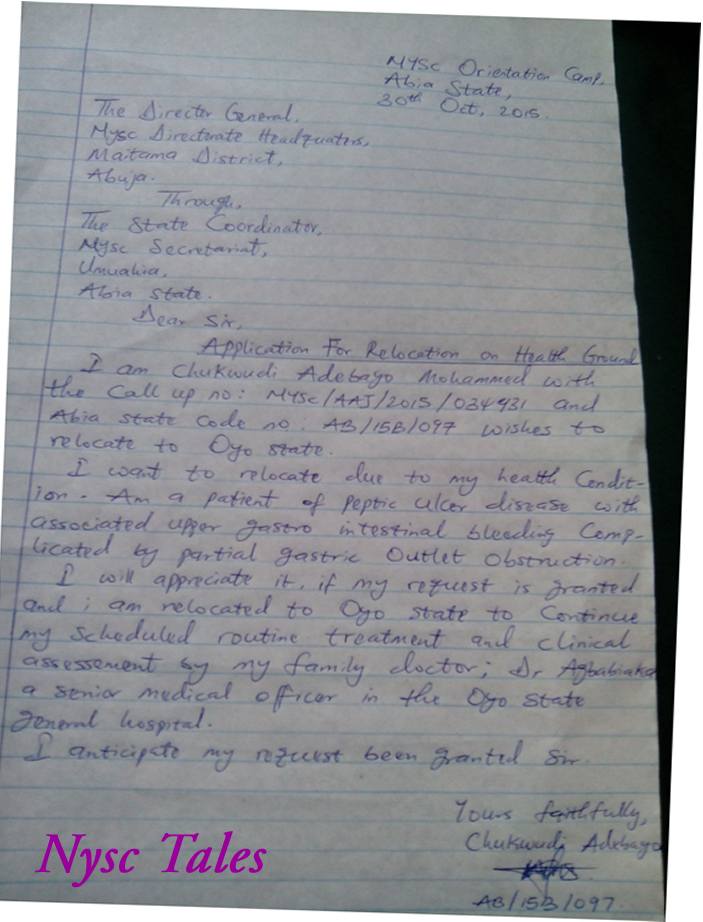 NYSC Orientation Camp,
Abia State,
30th Oct, 2015.
The Director General,
Nysc Directorate Headquaters,
Maitama District,
Abuja.
Through,
The State Coordinator,
Nysc Secretariat,
Umuahia,
Abia State.
Dear Sir,
Application For Relocation on Health Ground
I am Chukwudi Adebayo Mohammed with
the Call up no: NYSC/AAJ/2015/034931 and
Abia state Code no: AB/15B/097 wishes to
relocate to Oyo state.
I want to relocate due to my health Condit-
ion. Am a patient of peptic ulcer disease with
associated upper gastro intestinal bleeding Comp-
licated by partial gastric Outlet Obstruction.
I will appreciate it, if my request is granted
and i am relocated to Oyo state to Continue
my scheduled routine treatment and clinical
assessement by my family doctor; Dr Agbabiaka
a senior medical officer in the Oyo State
general hospital.
I anticipate my request been granted Sir.
Yours faithfully,
Chukwudi Adebayo
AB/15B/097.
Nysc Tales